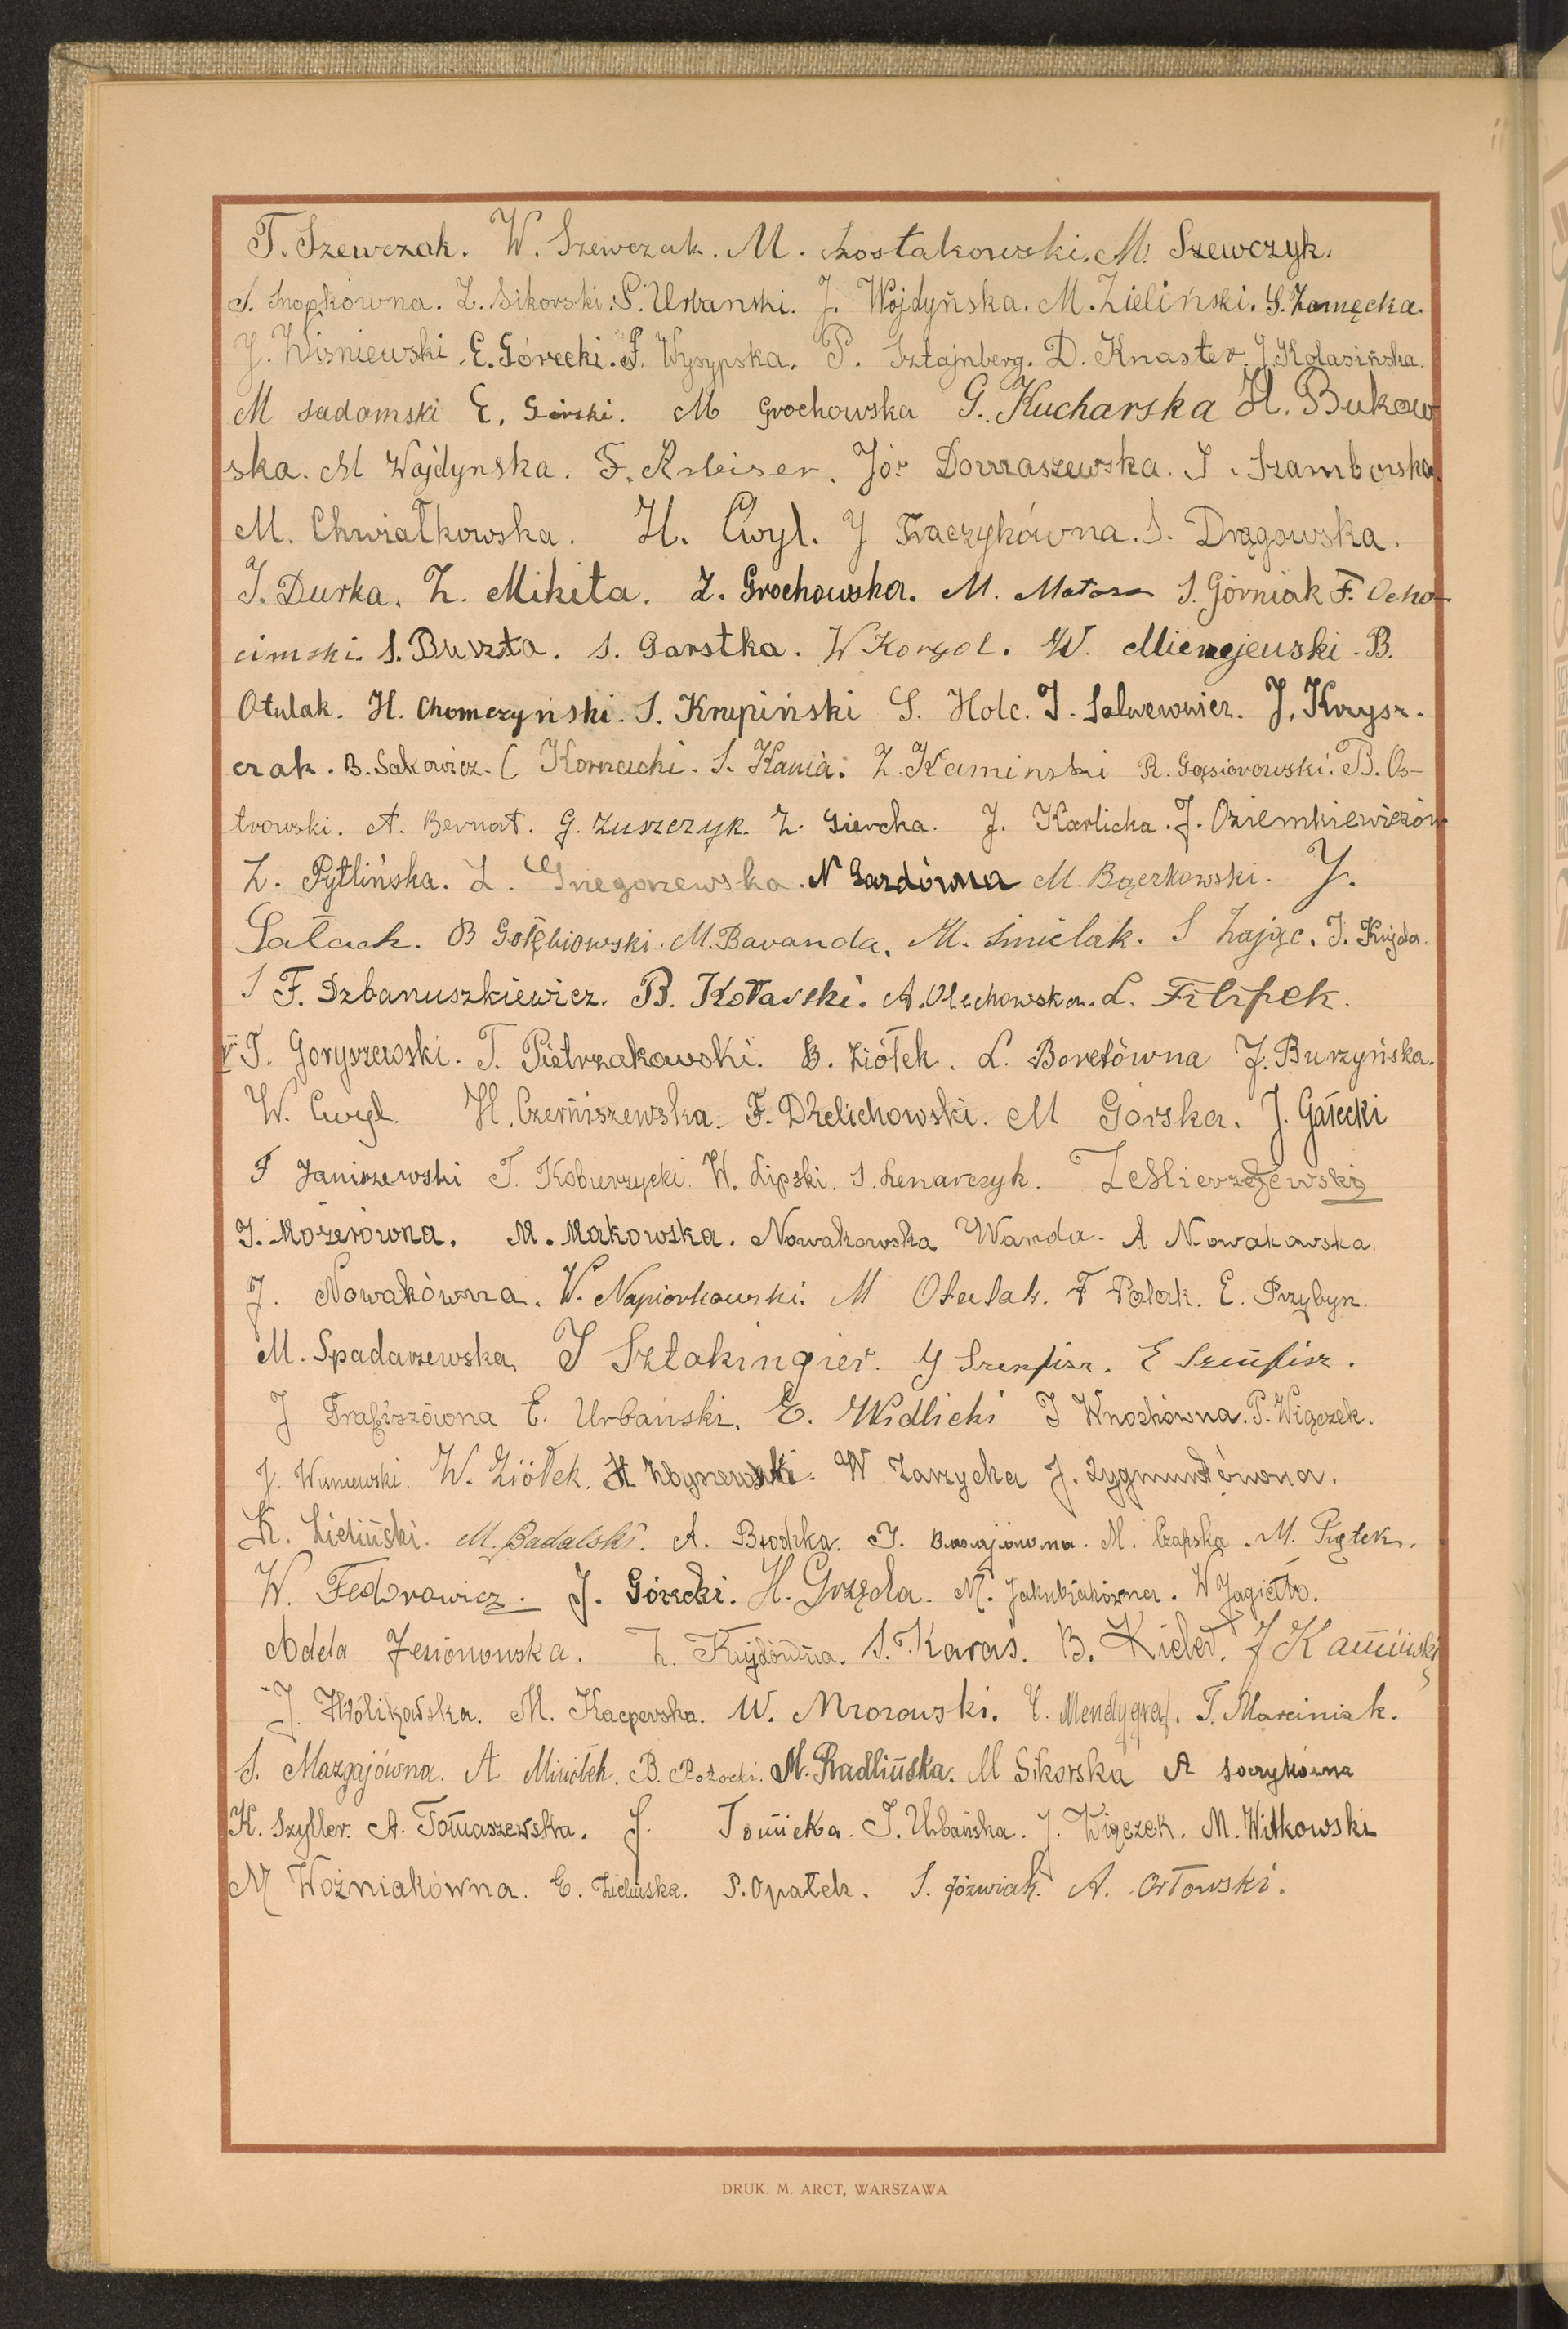 T. Szewczak. W. Szewczak. M. Szostakowski. M. Szewczyk.
S. Snopkówna. Z. Sikorski. S. Urbanski. J. Wojdyńska. M. Zieliński. S. Zamęcka.
J. Wisniewski. E. Górecki. F. Wysypska. P. Sztajnberg. D. Knaster. J. Kolasińska.
M Sadomski E. Górski. M Grochowska G. Kucharska H. Bukow
ska. M Wojdynska. F. Józ Domaszewska. J. Szamborska.
M. Chwiałkowska. H. Cwyl. J Fraczykówna. S. Drągowska.
J. Durka. Z. Mikita. Z. Grochowska. M. S. Górniak F. Ocho-
cimski. S. Buszta. S. Garstka. W Korgol. W. B.
Otulak. H. Chomczyński. S. Krupiński S. Holc. J. Salwerowicz. J. Krysz-
czak. B. Sakowicz. C Kornacki. S. Kania. Z. Kaminski R. Gąsiorowski. B. Os-
trowski. A. Bernat. G. Zuszczyk. Z. Giercha. J. Karlicka. J. Oziemkiewiczów
Z. Pytlińska. L. Gregorzewska. N Gazdówna M. Bączkowski. J.
Sałach. B Gołębiowski. M. Bavanda. M. Smielak. S Zając. J. Kujda.
S F. Dzbanuszkiewicz. B. Kotarski. A. Olechowska. L. Filipek.
T. Goryszewski. T. Pietrzakowski. B. Ziółek. L. Boretówna J. Burzyńska.
W. Cwyl. H. Czerniszewska. F. Dzelichowski. M Górska. J. Gałecki
F Janiszewski T. Koburzycki. W. Lipski. S. Lenarczyk.
J. Mozerówna. M. Makowska. Nowakowska Wanda. A Nowakowska.
J. Nowakówna. W. Napiorkowski. M Otulak. F Polak. E. Przybyn.
M. Spadarzewska. J Sztakingier. J Szenfisz. E Szenfisz.
J E. Urbański. E. Widlicki J Wnochówna. P. Wiączek.
J. Wisniewski. W. Ziółek. H. W Zarzycka J. Zygmuntówna.
K. Zieliński. M. Badalski. A. Brochka. J. M. Czapska. M. Piątek.
W. Fedorowicz. J. Górecki. H. Grzęda. M. Jakubiakówna. W Jagiełło.
Adela Jezionowska. Z. Kujdówna. S. Karaś. B. Kieler. J Kamiński
J. Królikowska. M. Kacperska. W. Mrozowski. E. Mendygrał. T. Marciniak.
S. Mazgajówna. A Miciołek. B. Potocki. M. Radlińska. M Sikorska A Soczykówna
K. Szyller. A. Tomaszewska. J. Tomicka. J. Urbańska. J. Wiączek. M. Witkowski
M Woźniakówna. E. Zielińska. S. Opałek. S. Jóźwiak. A. Orłowski.
DRUK. M. ARCT, WARSZAWA